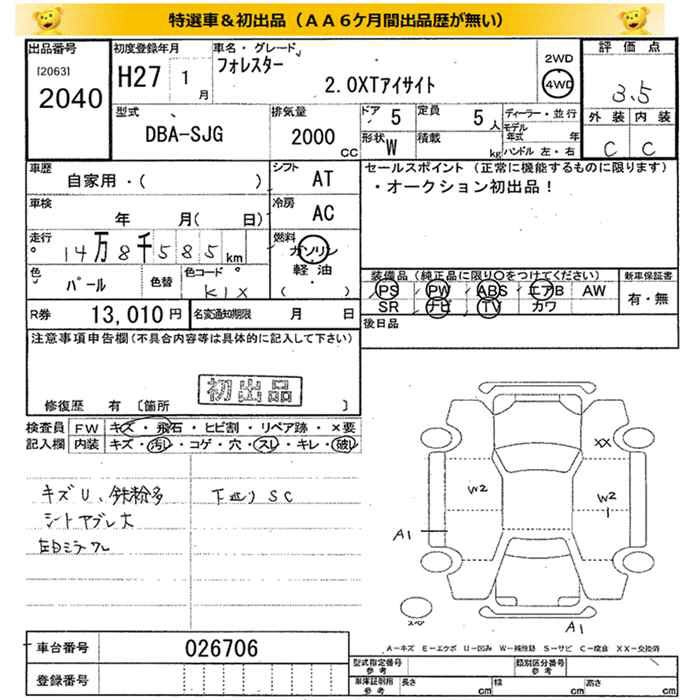 特選車＆初出品（ＡＡ６ケ月間出品歴が無い）
出品番号
[2063]
2040
初度登録年月
H27 1月
車名・グレード
フォレスター
2.0XTアイサイト
2WD
4WD
評価点
3.5
外装 内装
C C
型式
DBA-SJG
排気量
2000 CC
ドア 5
定員 5人
形状 W
積載 kg
ディーラー・並行
モデル年式 年
ハンドル 左・右
車歴
自家用・( )
シフト AT
車検
年 月( 日)
冷房 AC
走行
14万8千585km
燃料
ガソリン
軽油
( )
色 パール
色替
色コード K1X
R券 13,010円
名変通知期限 月 日
セールスポイント（正常に機能するものに限ります）
・オークション初出品！
装備品（純正品に限り○をつけてください）
PS PW ABS エアB AW
SR ナビ TV カワ
新車保証書
有・無
後日品
注意事項申告欄(不具合内容等は具体的に記入して下さい)
初出品
修復歴 有 〔箇所 〕
検査員記入欄
FW キズ・飛石・ヒビ割・リペア跡・×要
内装 キズ・汚し・コゲ・穴・スレ・キレ・破し
キズU、鉄粉多
下廻りSC
シートアブレ大
XX
W2
W2
1
A1
A1
A－キズ E－エクボ U－凹み W－補修跡 S－サビ C－腐食 XX－交換済
車台番号 026706
登録番号
型式指定番号 参考
類別区分番号 参考
車庫証明用 参考
長さ cm
幅 cm
高さ cm